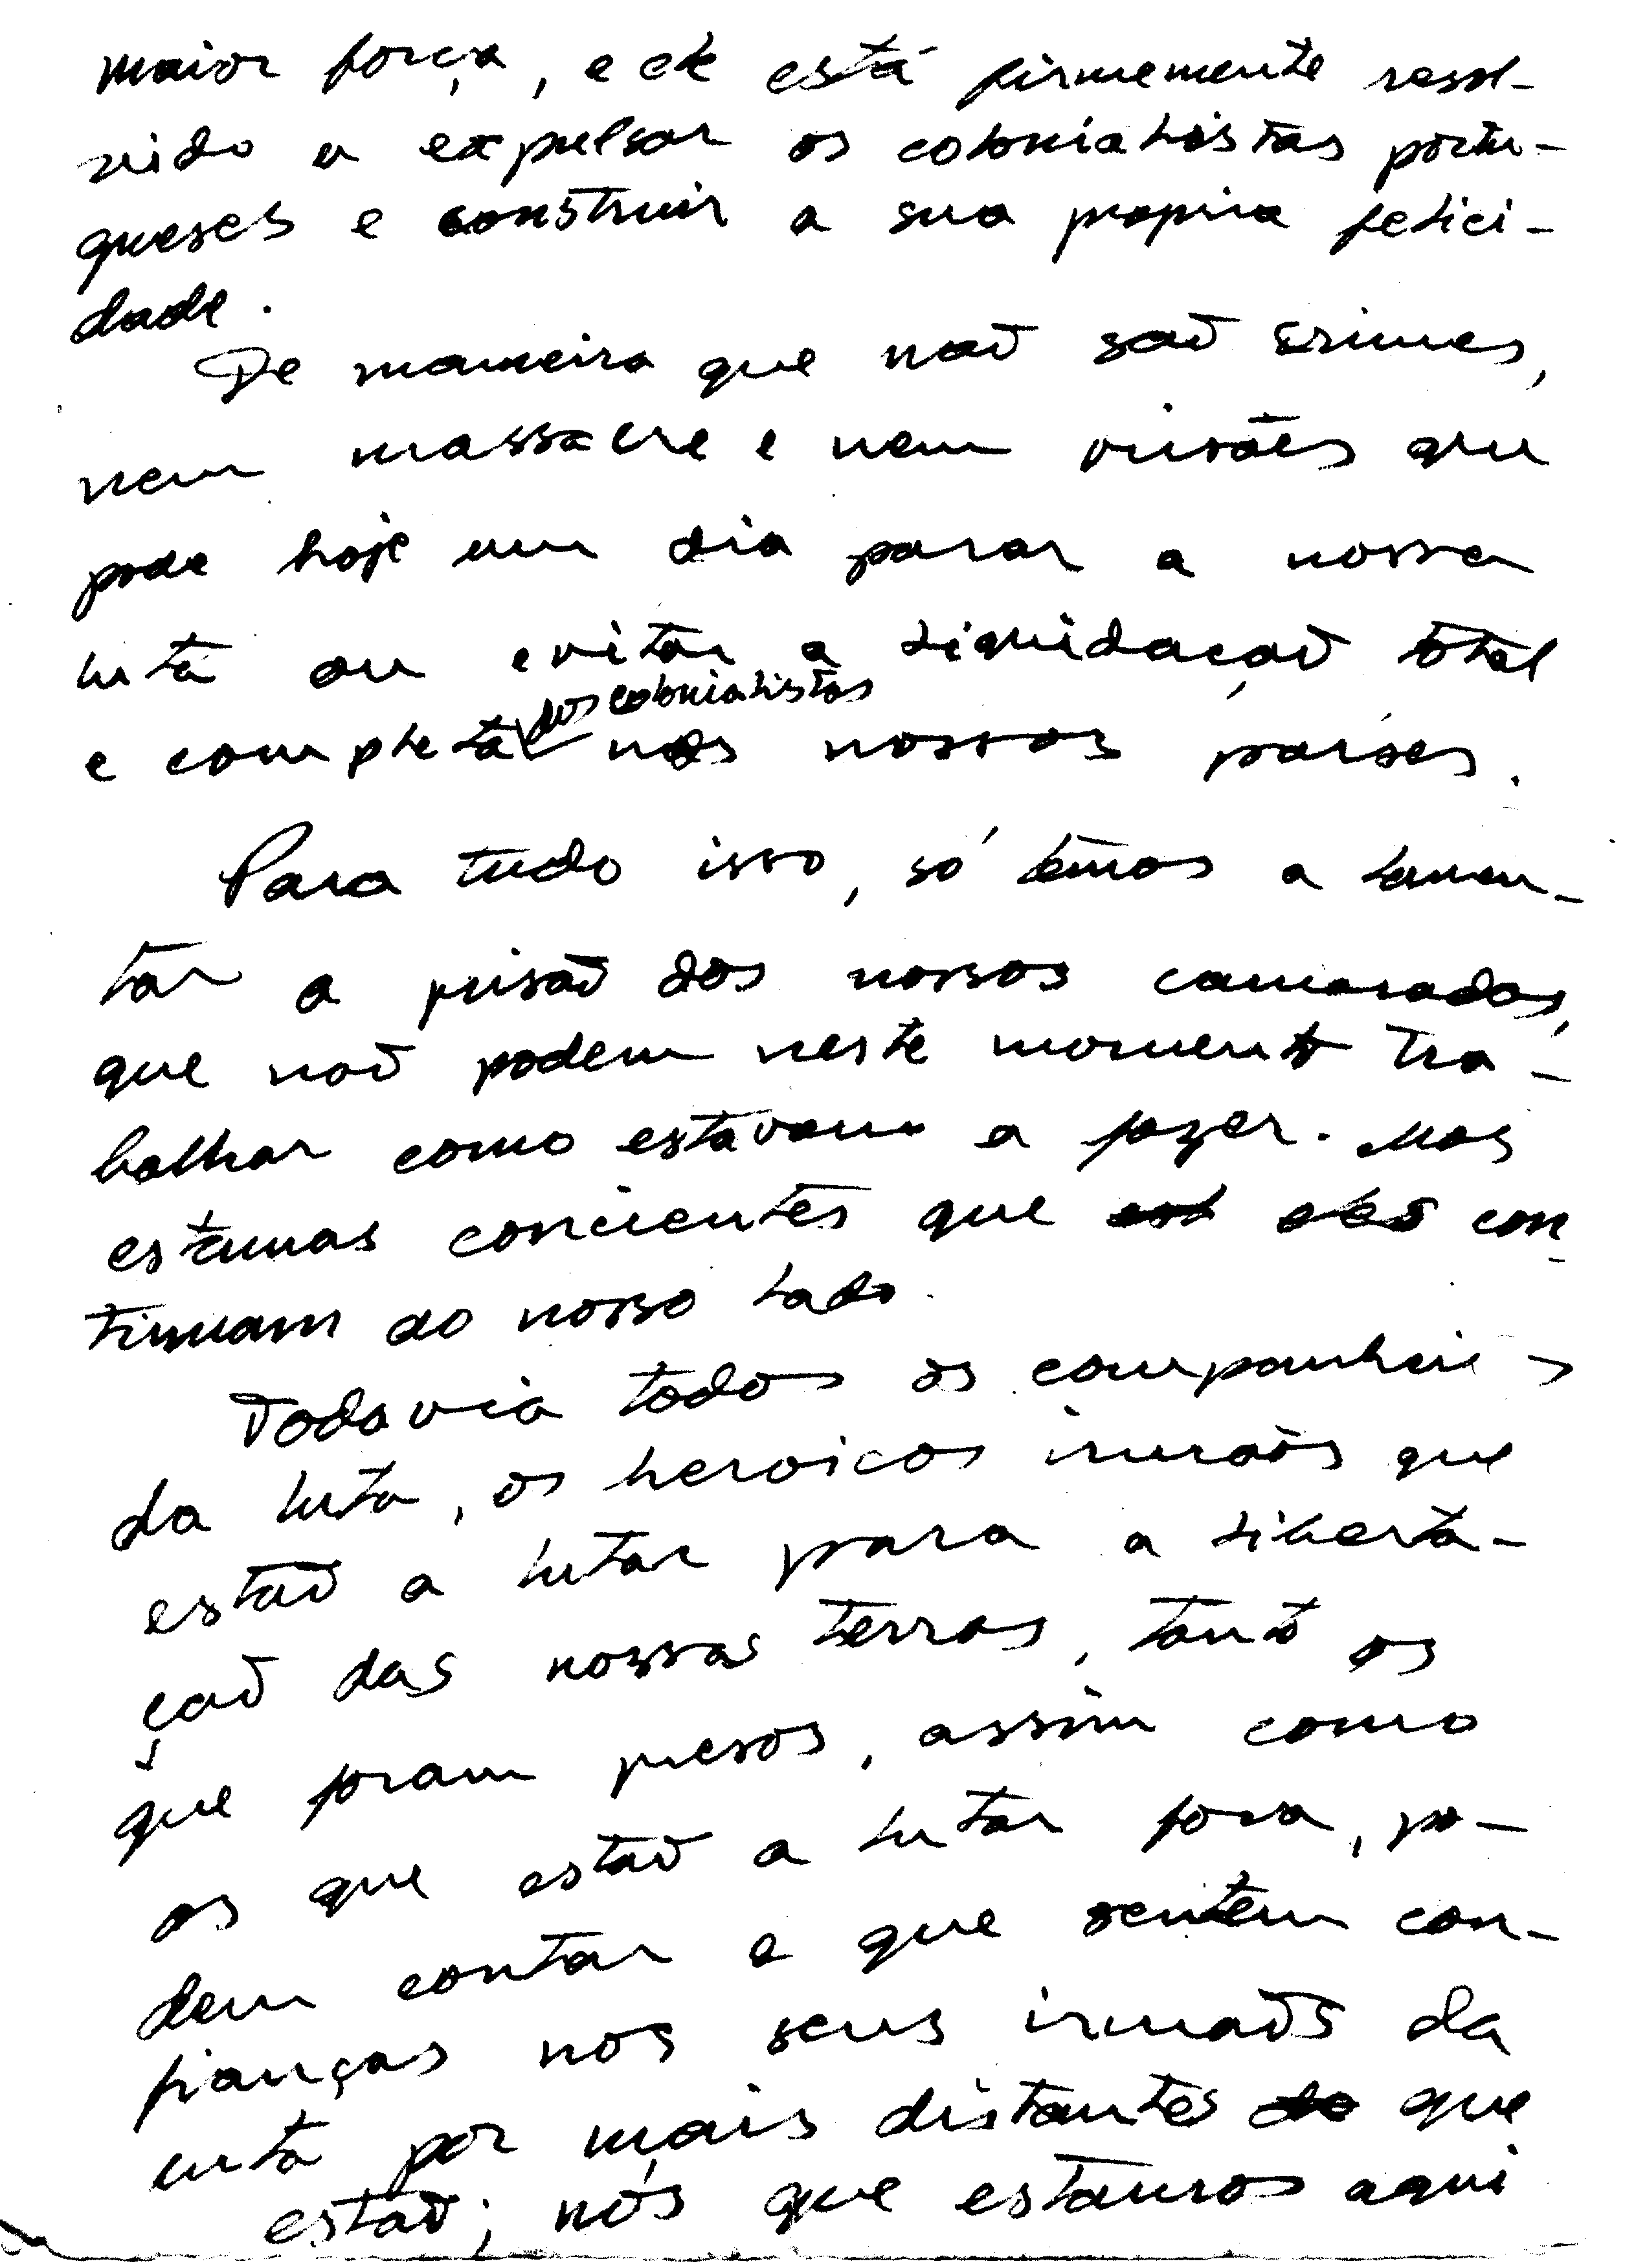 maior força, e ele está firmemente resol-
vido a expulsar os colonialistas portu-
gueses e construir a sua propria felici-
dade.
De maneira que não são crimes,
nem massacre e nem prisões que
pode hoje um dia parar a nossa
luta ou evitar a liquidação total
e completa dos colonialistas nos nossos países.
Para tudo isso, só temos a lamen-
tar a prisão dos nossos camaradas,
que não podem neste momento tra-
balhar como estavam a fazer. Mas
estamos concientes que eles con
tinuam ao nosso lado.
Todavia todos os companheiros
da luta, os heroicos irmãos que
estão a lutar para a liberta-
ção das nossas terras, tanto os
que foram presos, assim como
os que estão a lutar fora, po-
dem contar e que sentem con-
fianças nos seus irmãos da
luta por mais distantes que
estão; nós que estamos aqui